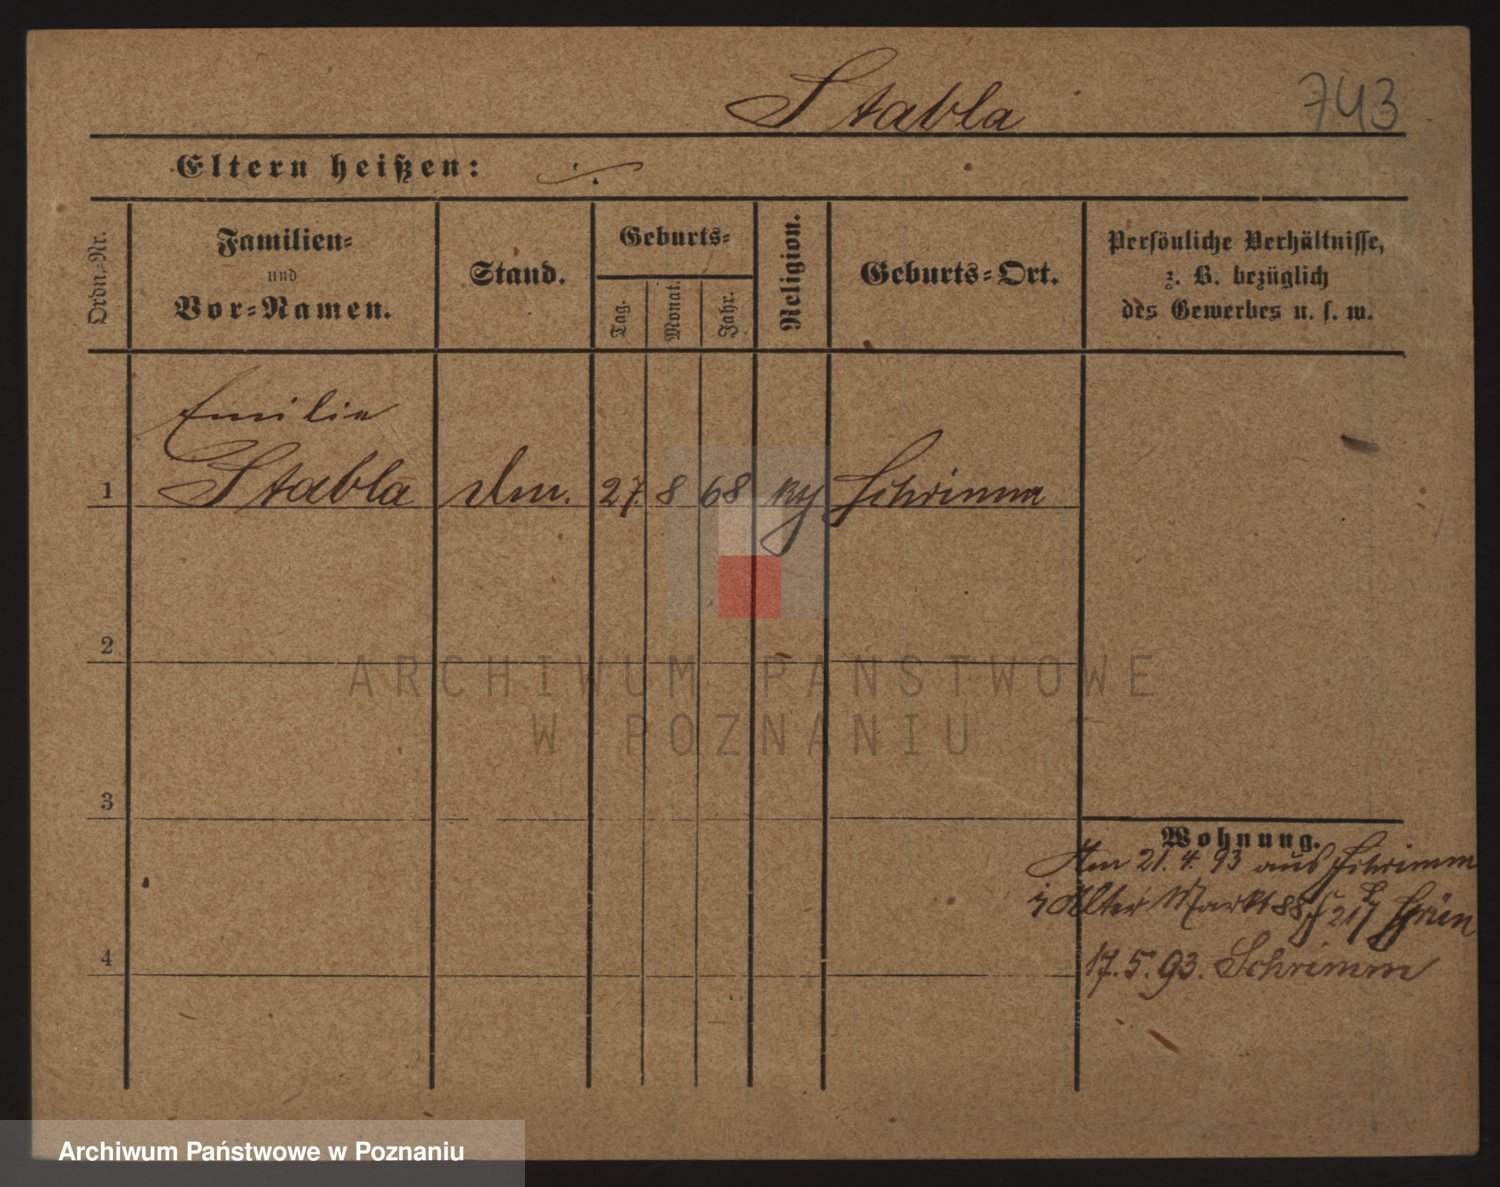 Stabla 743
Eltern heißen: ./.
Ordn.-Nr.
Familien-
und
Vor-Namen.
Stand.
Geburts-
Tag.
Monat.
Jahr.
Religion.
Geburts-Ort.
Persönliche Verhältnisse,
z. B. bezüglich
des Gewerbes u. s. w.
Emilie
1 Stabla 27. 8 68 Schrimm
2
3
4
Wohnung.
Am 21. 4. 93 aus Schrimm
Alter Markt 88 Grün
17. 5. 93. Schrimm
ARCHIWUM PAŃSTWOWE
W POZNANIU
Archiwum Państwowe w Poznaniu